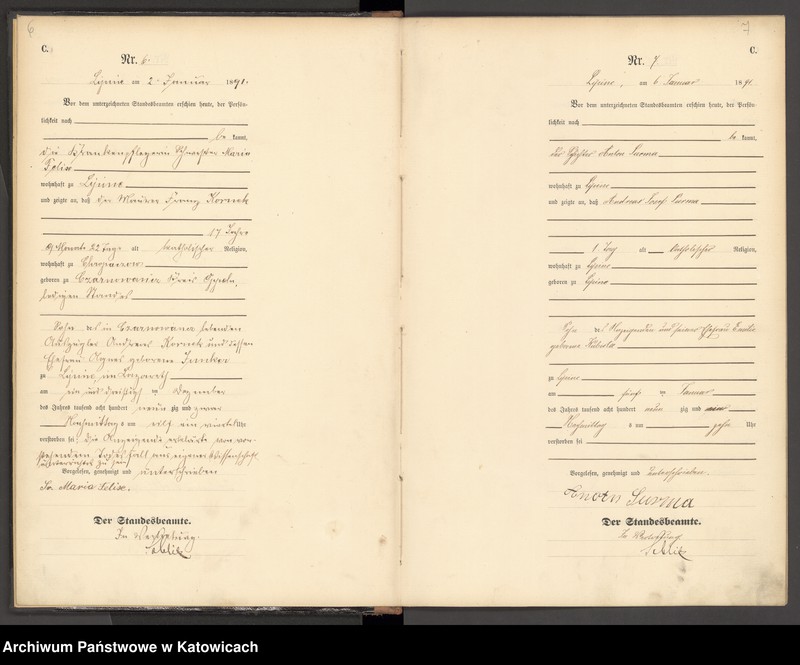 6
C.
Nr. 6
Lipine am 2. Januar 1891.
Vor dem unterzeichneten Standesbeamten erschien heute, der Persön-
lichkeit nach
be kannt,
die Krankenpflegerin Schwester Maria
Felixa
wohnhaft zu Lipine
und zeigte an, daß der Maurer Franz Kornek
17 Jahre
9 Monate 22 Tage alt katholischer Religion,
wohnhaft zu
geboren zu Czarnowanz Kreis Oppeln,
ledigen Standes
Sohn des in Czarnowanz lebenden
Andreas Kornek und dessen
Ehefrau Agnes geborene Junker
zu Lipine, im Lazareth
am ein und dreißigsten Dezember
des Jahres tausend acht hundert neun zig und
Nachmittags um elf ein viertel Uhr
verstorben sei; die Anzeigende erklärte von vor-
stehendem Todesfall aus eigener Wissenschaft
unterrichtet zu sein
Vorgelesen, genehmigt und unterschrieben
Sr. Maria Felixa.
Der Standesbeamte.
In Vertretung.
7
C.
Nr. 7
Lipine, am 6 Januar 1891
Vor dem unterzeichneten Standesbeamten erschien heute, der Persön-
lichkeit nach
be kannt,
der Anton Surma
wohnhaft zu Lipine
und zeigte an, daß Andreas Josef Surma
1 Tag alt katholischer Religion,
wohnhaft zu Lipine
geboren zu Lipine
Sohn des Anzeigenden und seiner Ehefrau
geborene
zu Lipine
am fünf ten Januar
des Jahres tausend acht hundert neun zig und ein
Nachmittag s um zehn Uhr
verstorben sei
Vorgelesen, genehmigt und unterschrieben.
Anton Surma
Der Standesbeamte.
In Vertretung
Archiwum Państwowe w Katowicach